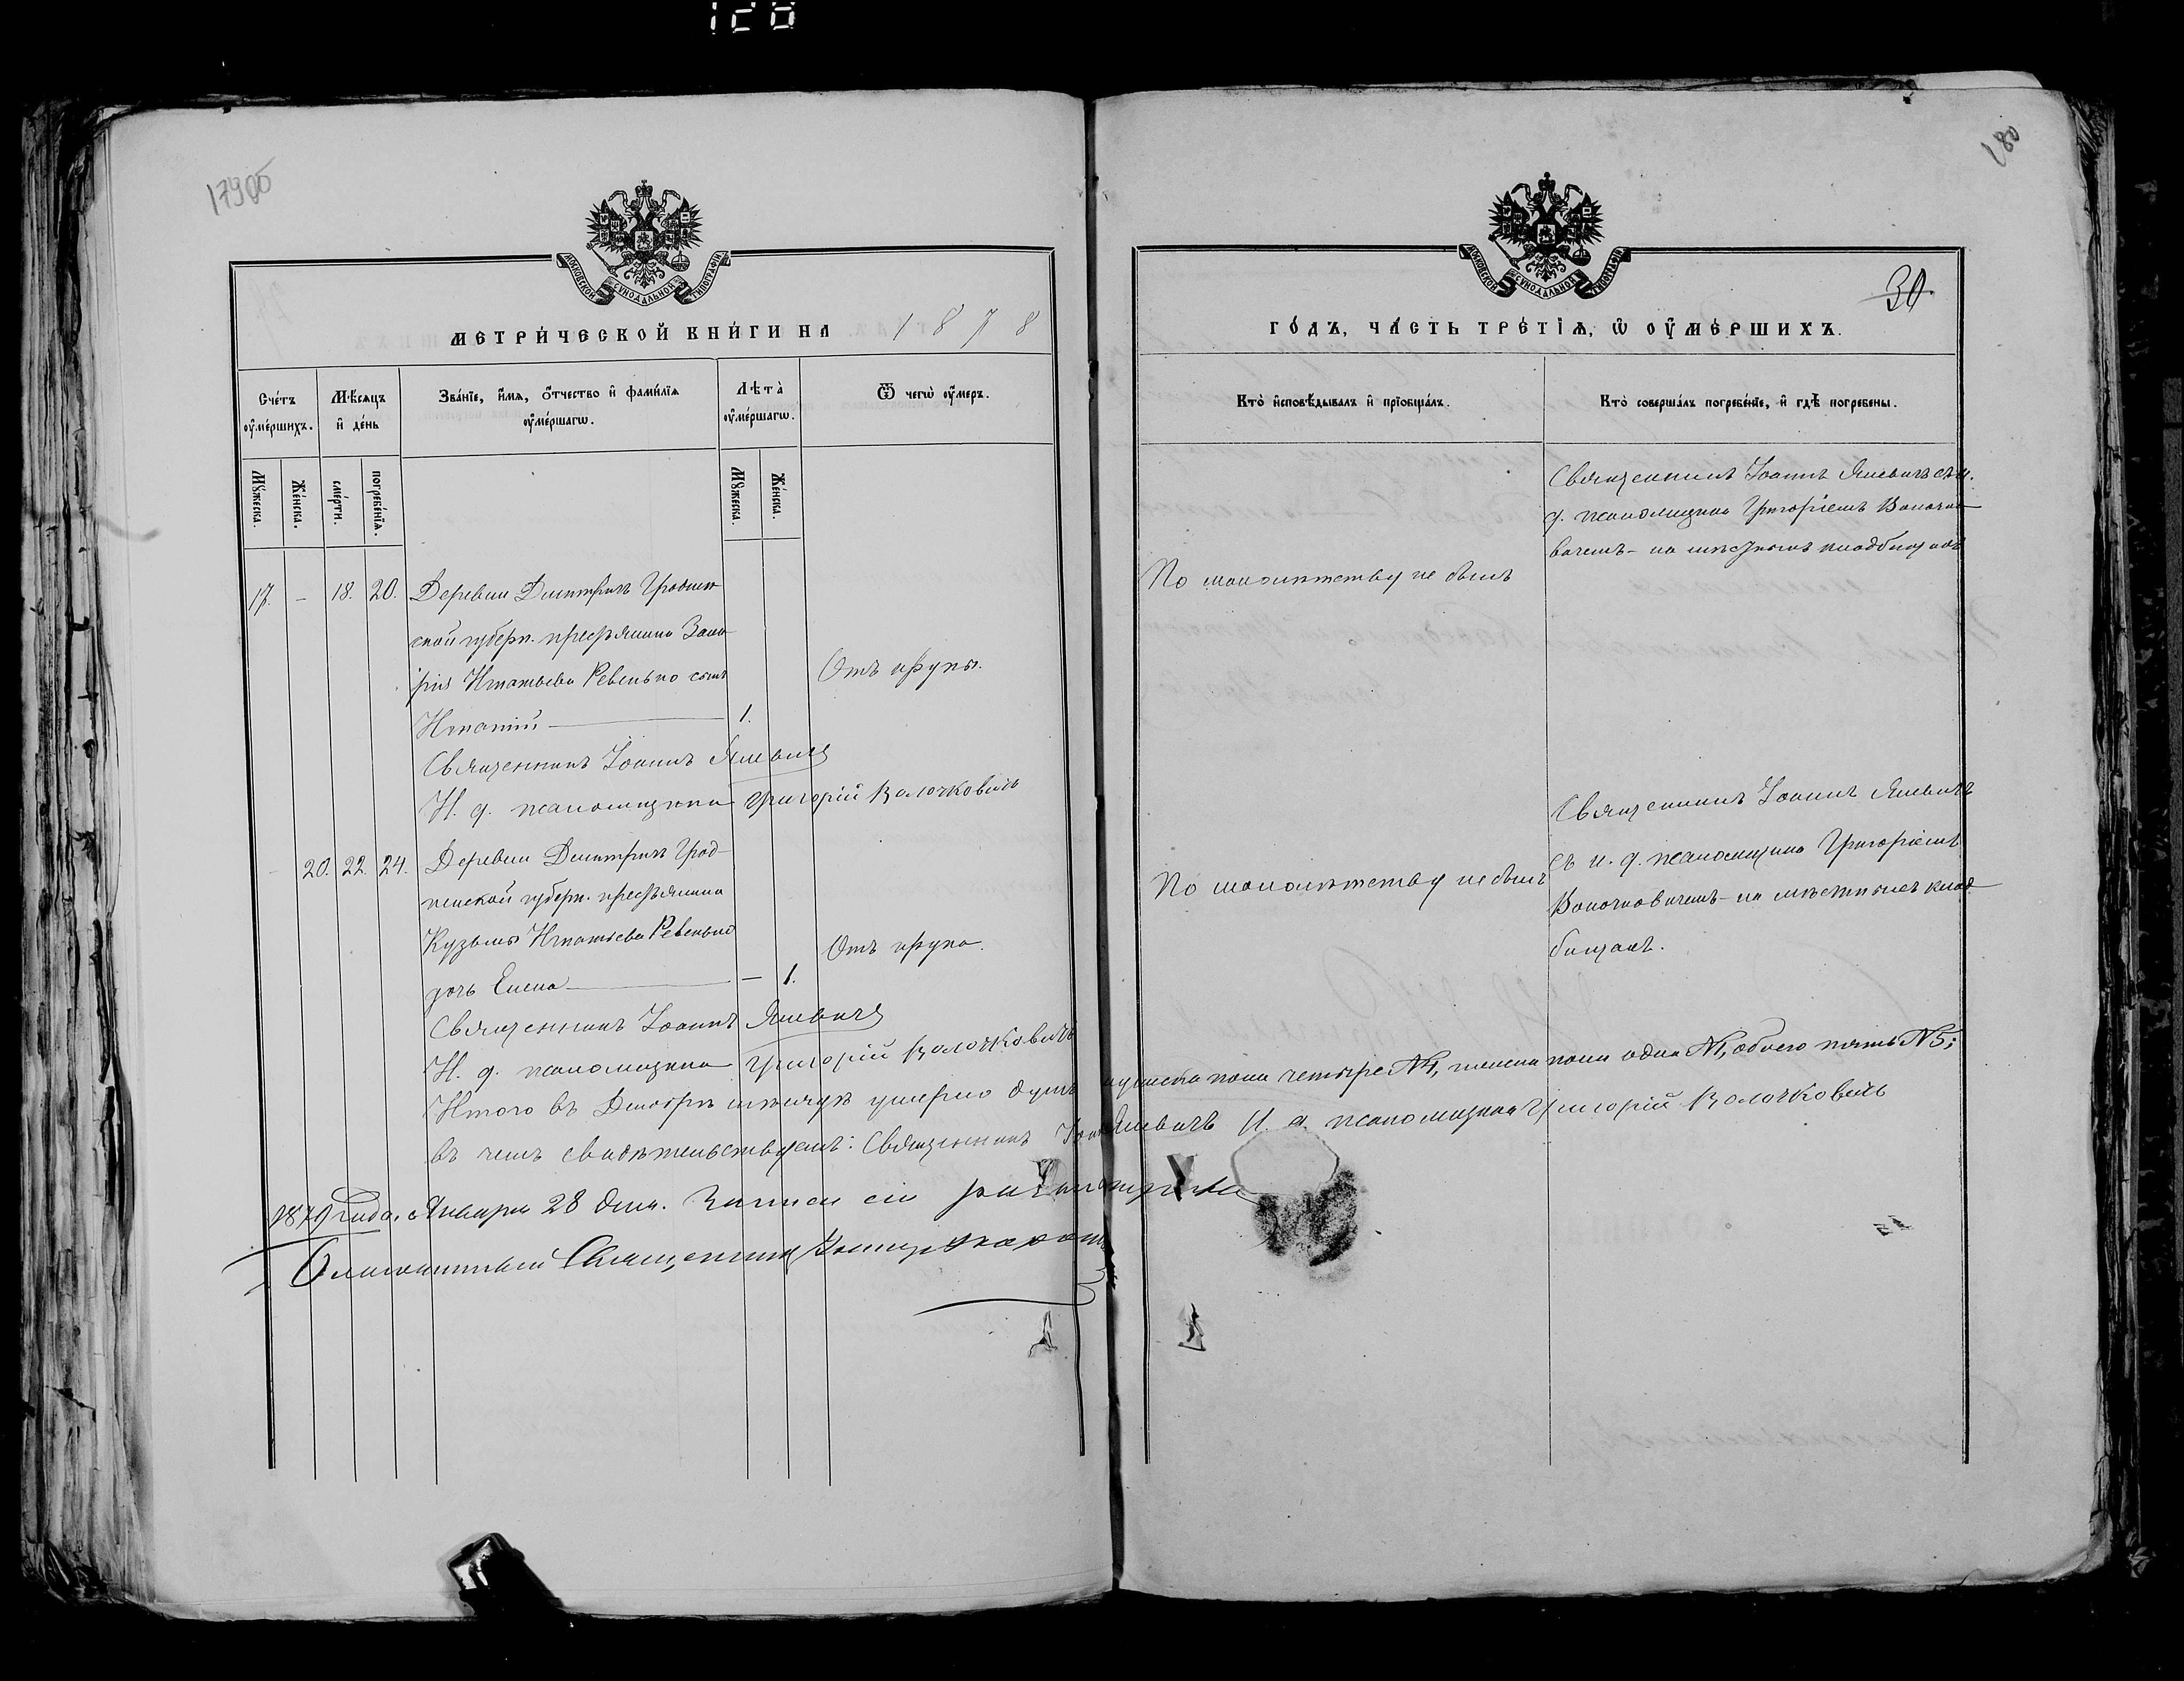 120
17906
180
30
МОСКОВСКОЙ СѴНОДАЛЬНОЙ ТИПОГРАФІИ
МОСКОВСКОЙ СѴНОДАЛЬНОЙ ТИПОГРАФІИ
МЕТРИ́ЧЕСКОЙ КНИ́ГИ НА 1878
ГО́ДЪ, ЧА́СТЬ ТРЕ́ТІѦ, Ѡ ОУ҆МЕ́РШИХЪ.
Сче́тъ оу҆ме́ршихъ.
Мѣ́сѧцъ и҆ де́нь
Зва́нїе, и҆́мѧ, ѻ҆́тчество и҆ фами́лїѧ оу҆ме́ршагѡ.
Лѣта̀ оу҆ме́ршагѡ.
Ѿ чегѡ̀ оу҆́меръ.
Кто̀ и҆сповѣ́дывалъ и҆ прїобща́лъ.
Кто̀ соверша́лъ погребе́нїе, и҆ гдѣ̀ погребены.
Мꙋ́жеска.
Же́нска.
сме́рти.
погребе́нїѧ.
Мꙋ́жеска.
Же́нска.
17. — 18. 20. Деревни Дмитрикъ Гроднен
ской губерн. крестьянина Заха
рія Игнатьева Ревенько сынъ
Игнатій — 1.
Отъ крупы.
По малолѣтству не былъ
Священникъ Іоаннъ Ялевичъ съ и.
д. псаломщика Григоріемъ Волочко
вичемъ - на мѣстномъ кладбищѣ
Священникъ Іоаннъ Ялевичъ
И. д. псаломщика Григорій Волочковичъ
— 20. 22. 24. Деревни Дмитрикъ Грод
ненской губерн. крестьянина
Кузьмы Игнатьева Ревенько
дочь Елена — — 1.
Отъ крупа.
По малолѣтству не былъ
Священникъ Іоаннъ Ялевичъ
съ и. д. псаломщика Григоріемъ
Волочковичемъ - на мѣстномъ клад
бищѣ.
Священникъ Іоаннъ Ялевичъ
И. д. псаломщика Григорій Волочковичъ
Итого въ Декабрѣ мѣсяцѣ умерло душъ мужеска пола четыре №4, женска пола одна №1, обоего пять №5;
въ чемъ свидѣтельствуемъ: Священникъ Іоаннъ Ялевичъ И. д. псаломщика Григорій Волочковичъ
1879 года, Января 28 дня. Записи сіи
Благочинный Священникъ